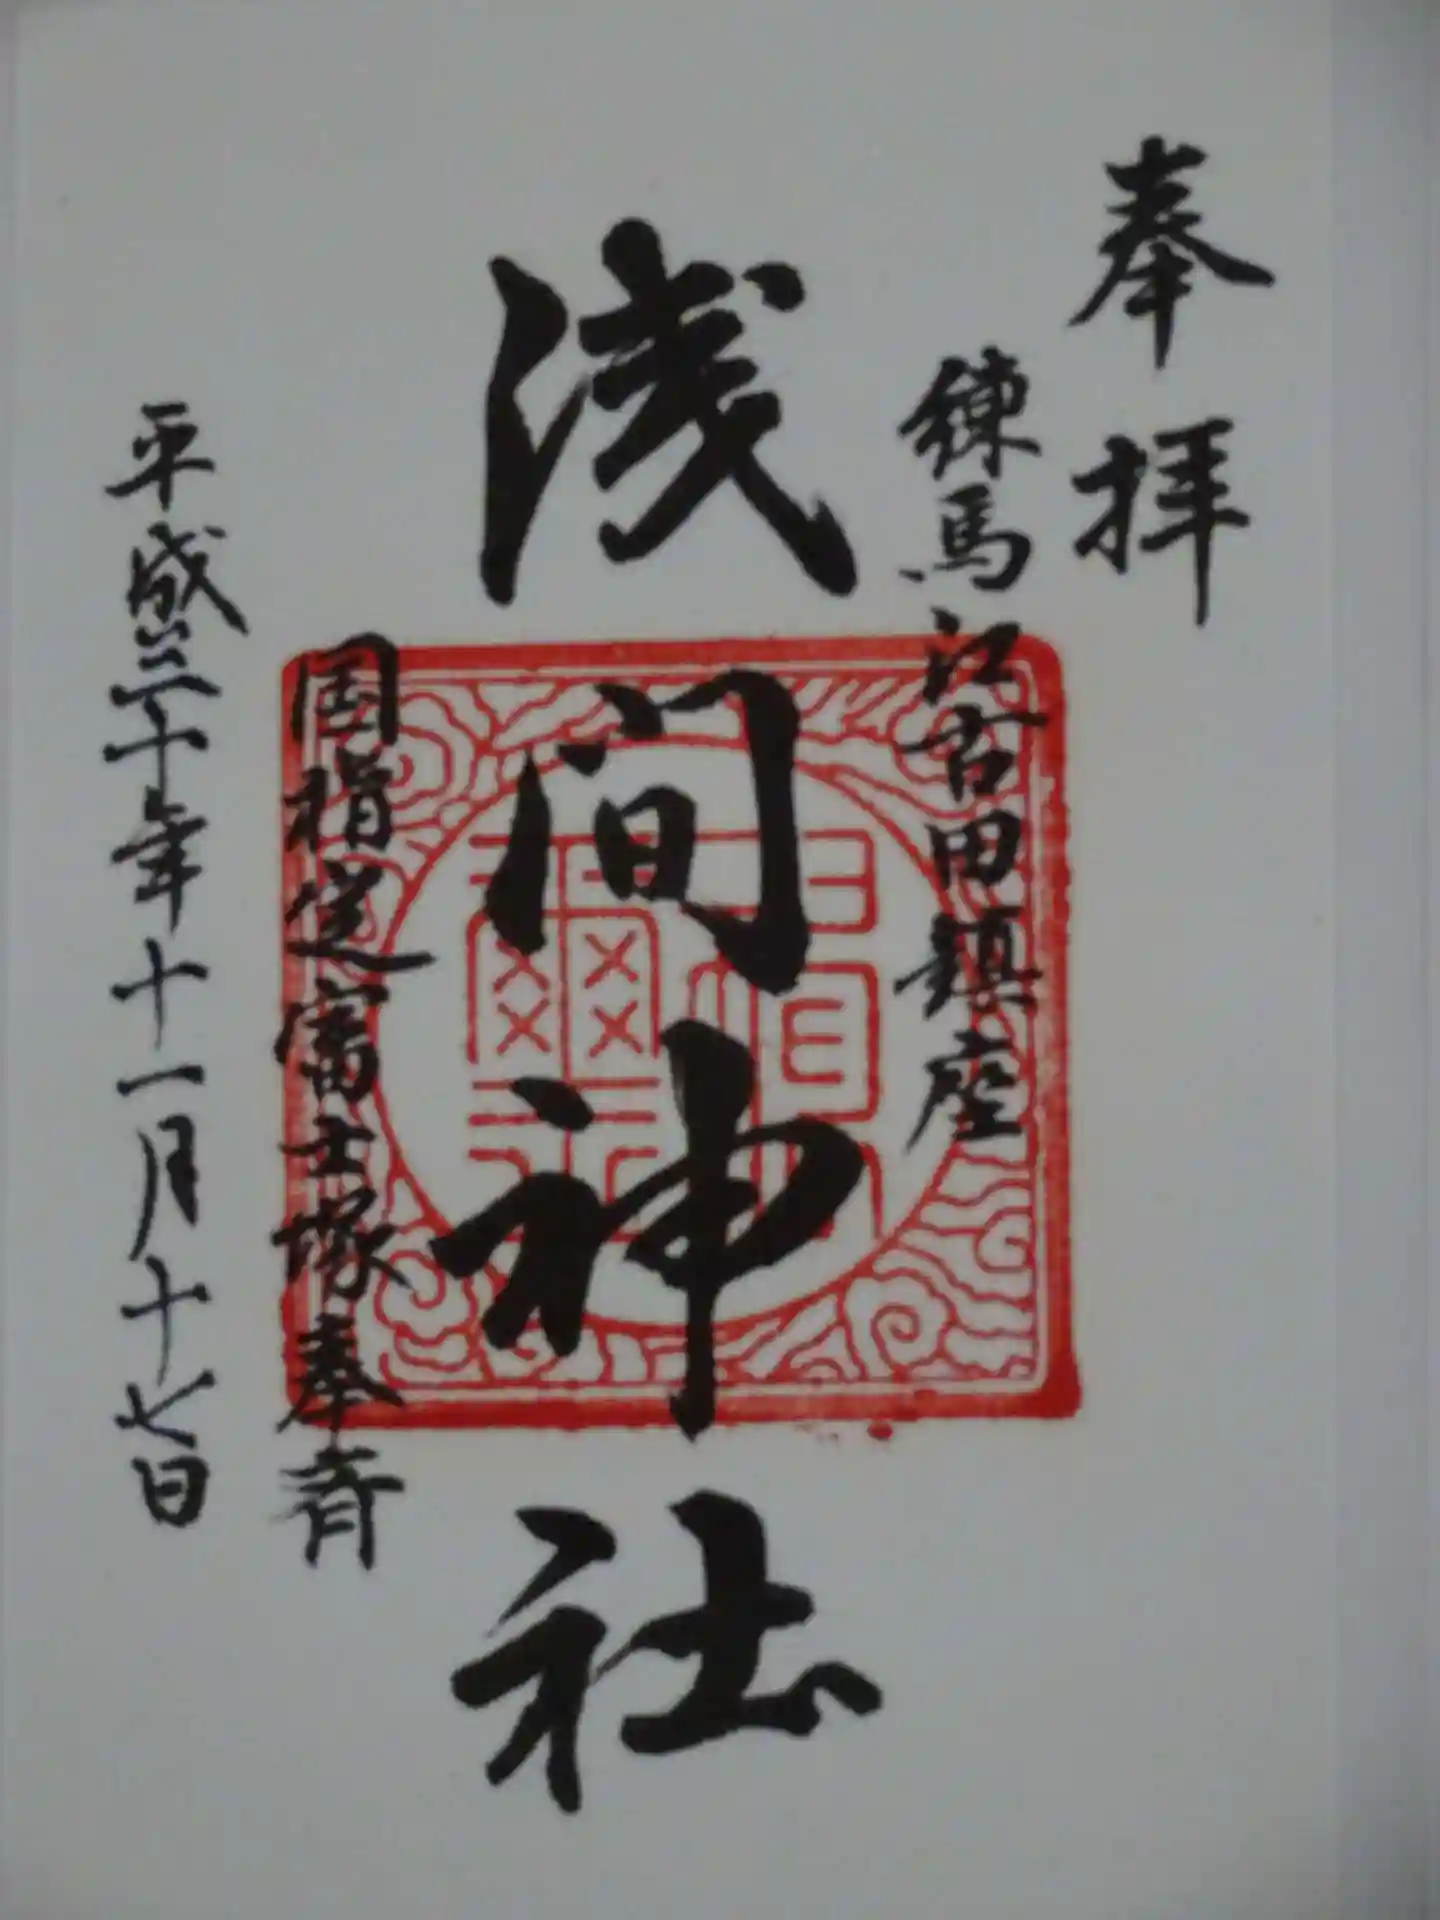 奉拝
練馬江古田鎮座
浅间神社
国指定富士塚奉斉
平成三十年十一月十七日